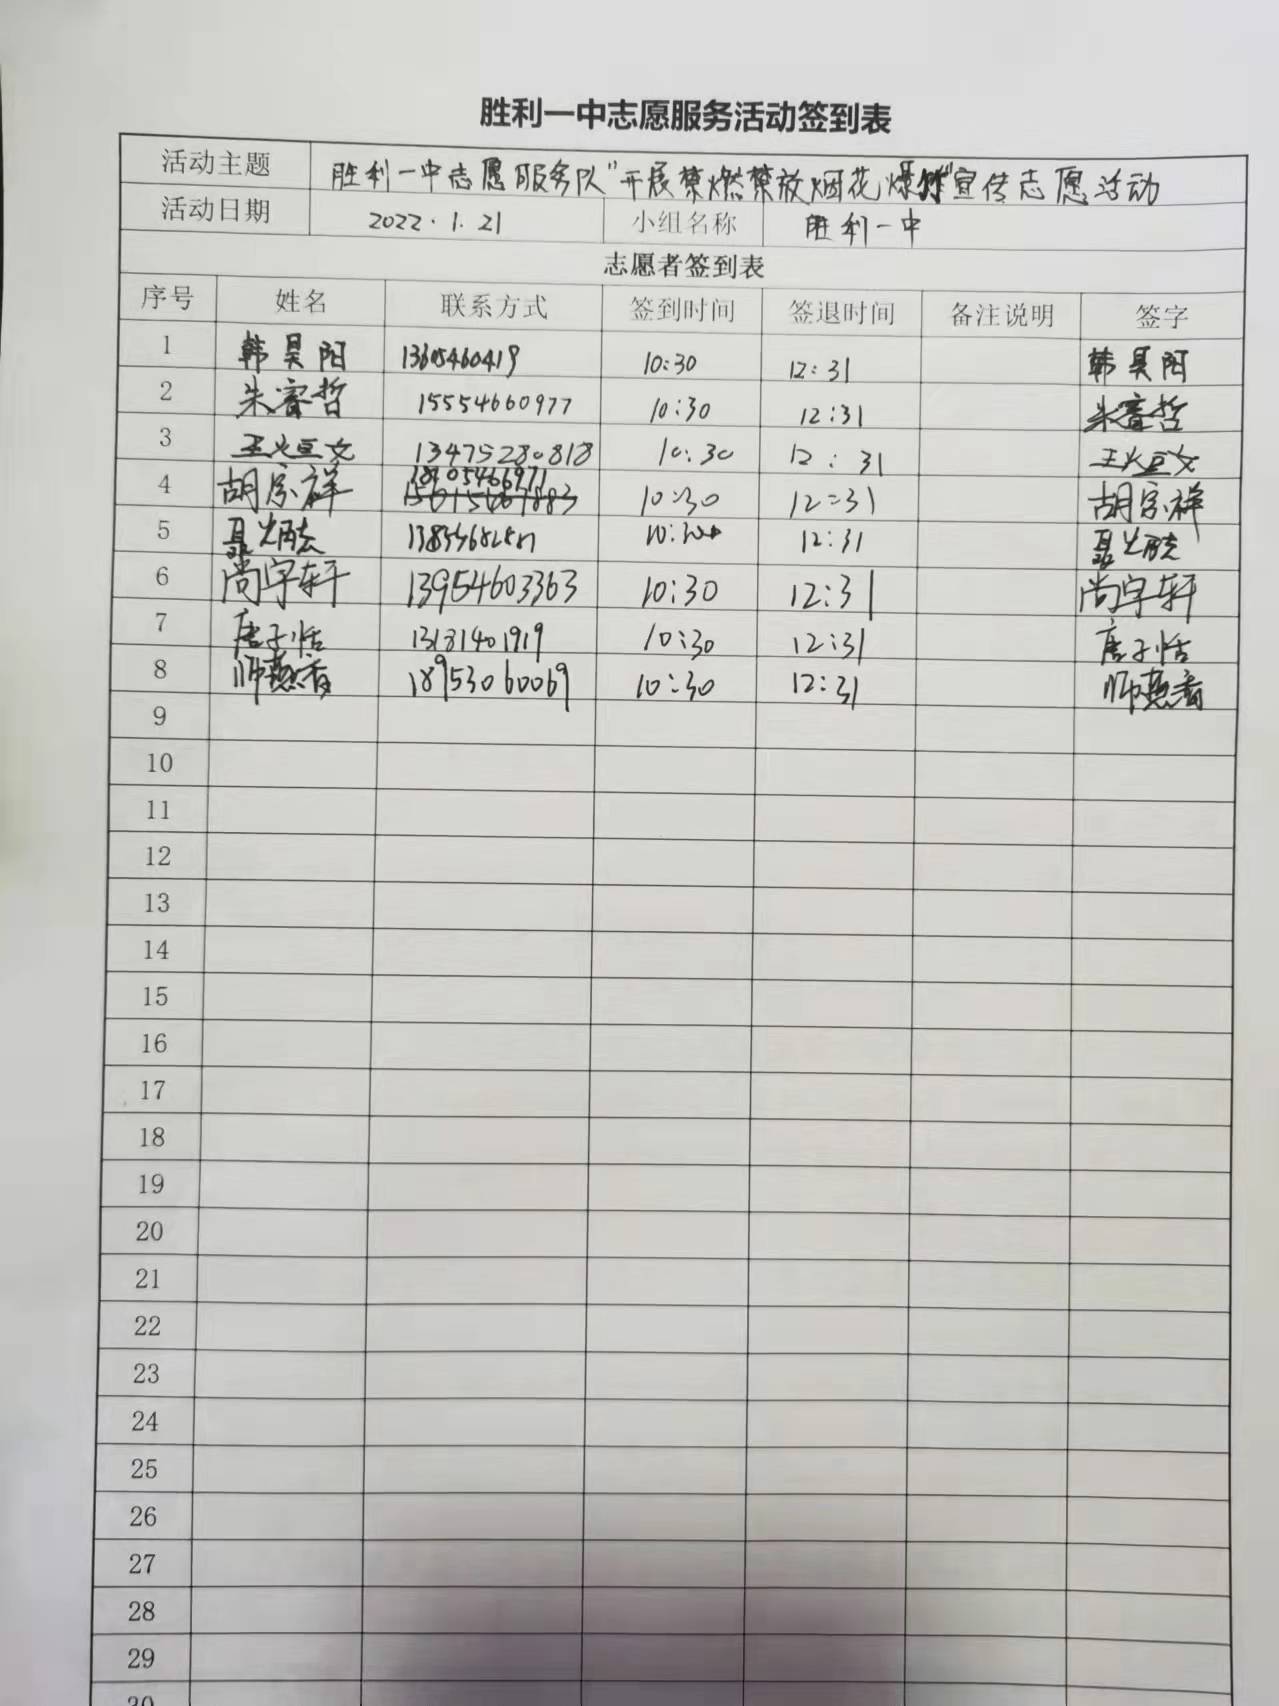 胜利一中志愿服务活动签到表
活动主题 胜利一中志愿服务队"开展禁燃禁放烟花爆竹"宣传志愿活动
活动日期 2022.1.21 小组名称 胜利一中
志愿者签到表
序号 姓名 联系方式 签到时间 签退时间 备注说明 签字
1 韩昊阳 13605460419 10:30 12:31 韩昊阳
2 朱睿哲 15554660977 10:30 12:31 朱睿哲
3 王烜文 13475280818 10:30 12:31 王烜文
4 胡宗祥 18905466971 10:30 12:31 胡宗祥
5 聂炳 10:30 12:31 聂炳
6 尚宇轩 13954603363 10:30 12:31 尚宇轩
7 唐子恬 13181401919 10:30 12:31 唐子恬
8 师燕香 18953060069 10:30 12:31 师燕香
9
10
11
12
13
14
15
16
17
18
19
20
21
22
23
24
25
26
27
28
29
30